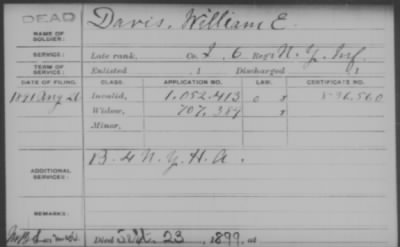 DEAD
NAME OF SOLDIER:
Davis, William E.
SERVICE:
Late rank, Co. I, 6 Reg't N. Y. Inf.
TERM OF SERVICE:
Enlisted , 1 Discharged , 1
DATE OF FILING. CLASS. APPLICATION NO. LAW. CERTIFICATE NO.
1891 Aug 26 Invalid, 1.052.413 836.560
Widow, 707.384
Minor,
ADDITIONAL SERVICES:
B. 4 N. Y. H. A.
REMARKS:
Died Sept. 23, 1899, at